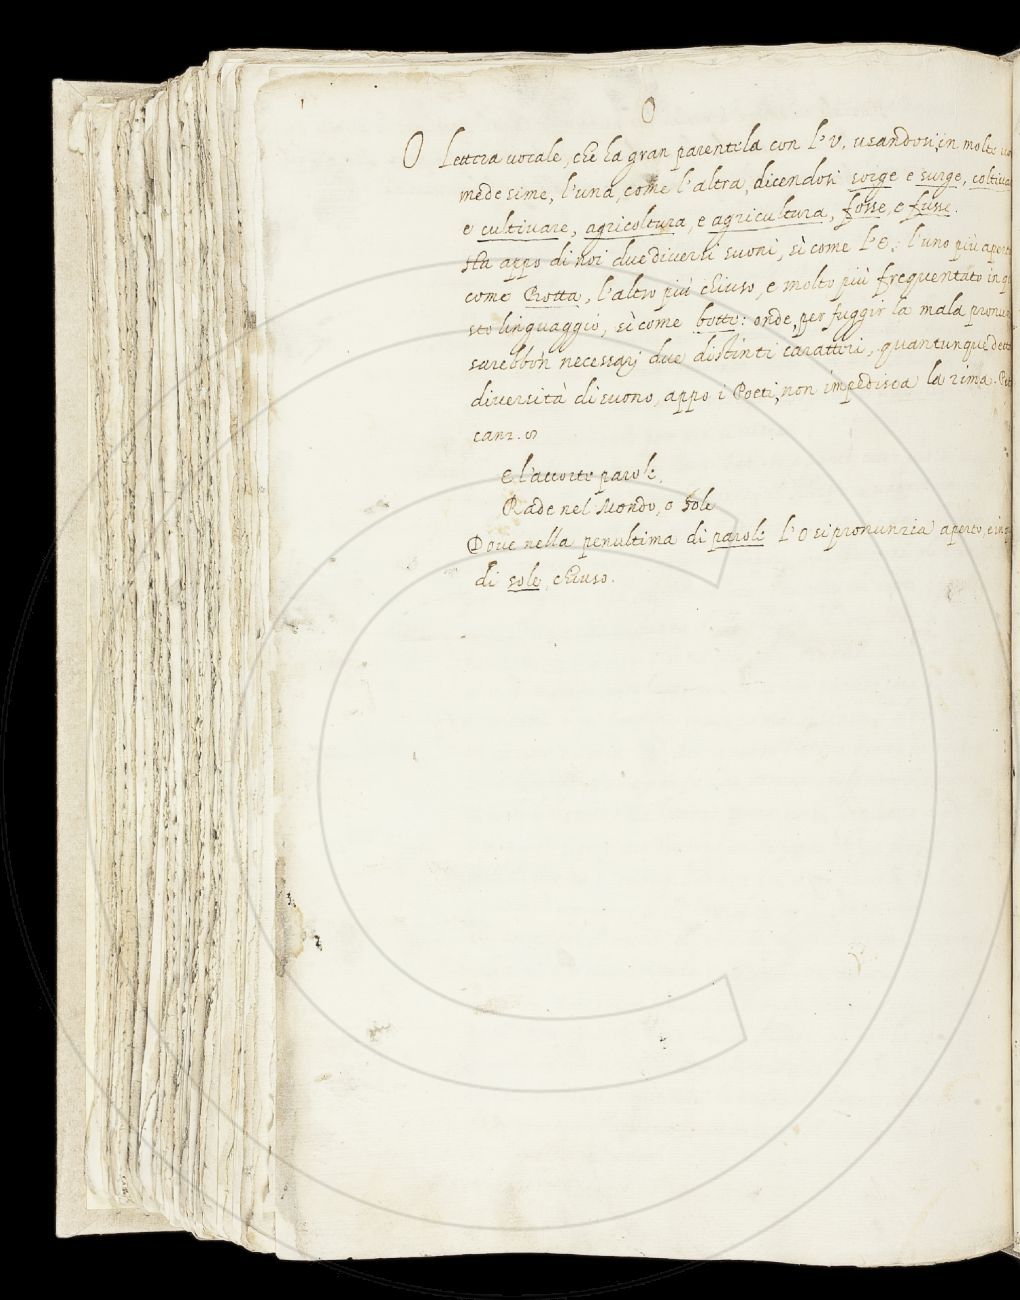 O
O Lettera vocale, che ha gran parentela con l'V. usandosi, in molte
medesime, l'una, come l'altra, dicendosi sorge e surge, coltiva
e cultivare, agricoltura, e agricultura, fosse, e fusse.
Ha appo di noi due diversi suoni, sì come l'E: l'uno più apert
come Botta, l'altro più chiuso, e molto più frequentato in q
sto linguaggio, sì come botte: onde, per fuggir la mala pronun
sarebbon necessarj due distinti caratteri, quantunque dett
diversità di suono, appo i Poeti, non impedisca la rima. Pet
canz.
E l'accorte parole,
Rade nel Mondo, o sole
Dove nella penultima di parole l'O si pronunzia aperto, e in
di sole, chiuso.